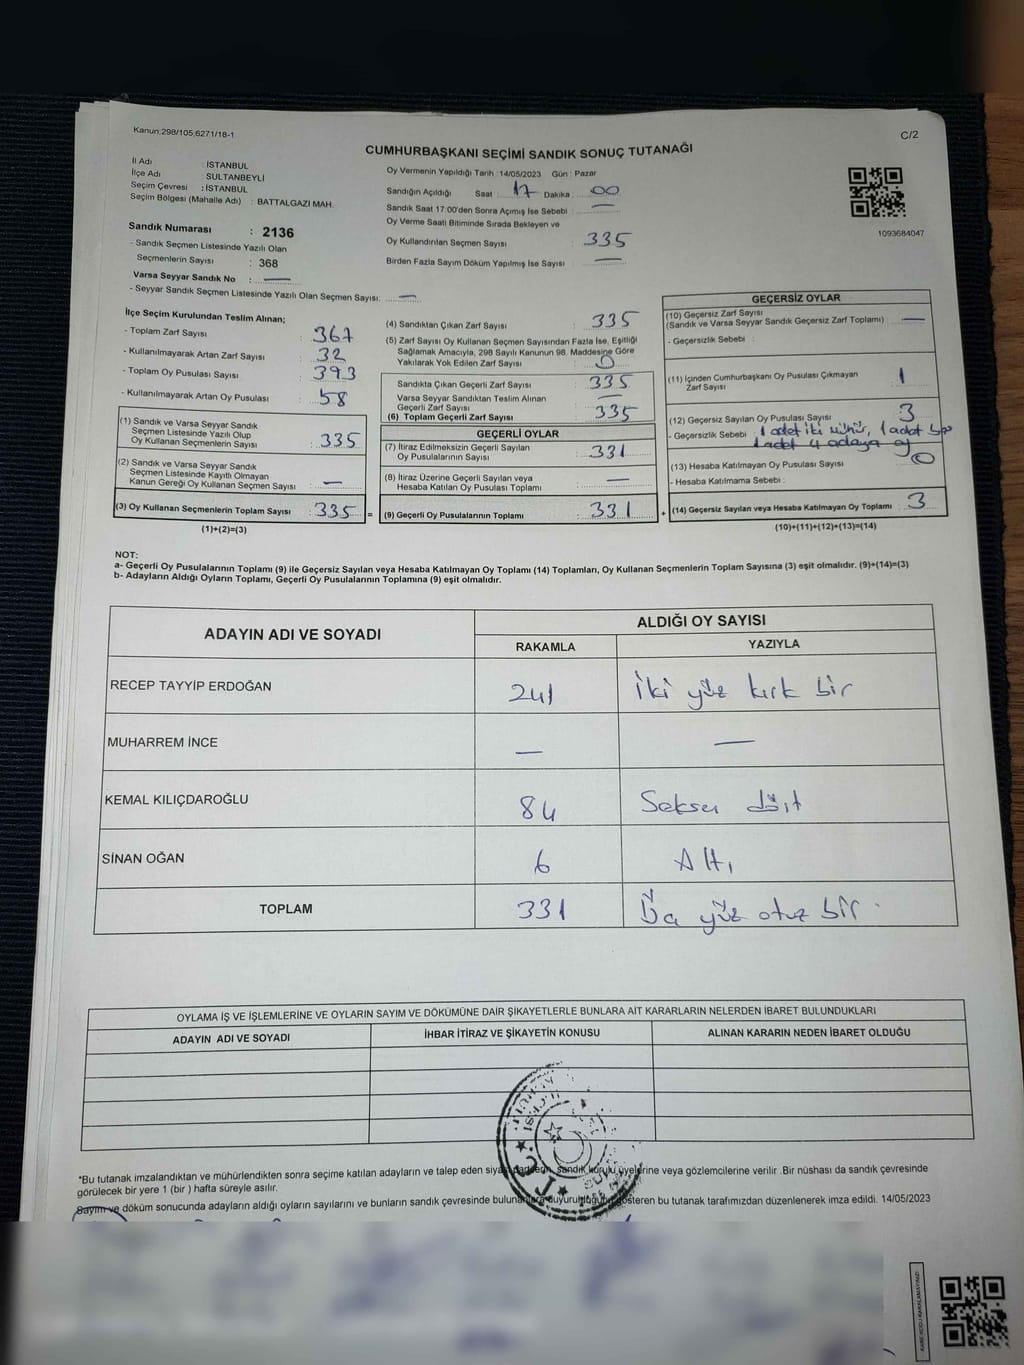 Kanun;298/105,6271/18-1
C/2
CUMHURBAŞKANI SEÇİMİ SANDIK SONUÇ TUTANAĞI
İl Adı : İSTANBUL
İlçe Adı : SULTANBEYLİ
Seçim Çevresi : İSTANBUL
Seçim Bölgesi (Mahalle Adı) : BATTALGAZI MAH.
Oy Vermenin Yapıldığı Tarih :14/05/2023 Gün : Pazar
Sandığın Açıldığı Saat : 17 Dakika : 00
Sandık Saat 17:00'den Sonra Açımış İse Sebebi : —
Oy Verme Saati Bitiminde Sırada Bekleyen ve
Oy Kullandırılan Seçmen Sayısı : 335
Birden Fazla Sayım Döküm Yapılmış İse Sayısı : —
1093684047
Sandık Numarası : 2136
- Sandık Seçmen Listesinde Yazılı Olan
Seçmenlerin Sayısı : 368
Varsa Seyyar Sandık No : —
- Seyyar Sandık Seçmen Listesinde Yazılı Olan Seçmen Sayısı: —
İlçe Seçim Kurulundan Teslim Alınan;
- Toplam Zarf Sayısı : 367
- Kullanılmayarak Artan Zarf Sayısı : 32
- Toplam Oy Pusulası Sayısı : 393
- Kullanılmayarak Artan Oy Pusulası : 58
(1) Sandık ve Varsa Seyyar Sandık
Seçmen Listesinde Yazılı Olup
Oy Kullanan Seçmenlerin Sayısı : 335
(2) Sandık ve Varsa Seyyar Sandık
Seçmen Listesinde Kayıtlı Olmayan
Kanun Gereği Oy Kullanan Seçmen Sayısı : —
(3) Oy Kullanan Seçmenlerin Toplam Sayısı : 335 =
(1)+(2)=(3)
(4) Sandıktan Çıkan Zarf Sayısı : 335
(5) Zarf Sayısı Oy Kullanan Seçmen Sayısından Fazla İse, Eşitliği
Sağlamak Amacıyla, 298 Sayılı Kanunun 98. Maddesine Göre
Yakılarak Yok Edilen Zarf Sayısı : 0
Sandıkta Çıkan Geçerli Zarf Sayısı : 335
Varsa Seyyar Sandıktan Teslim Alınan
Geçerli Zarf Sayısı : —
(6) Toplam Geçerli Zarf Sayısı : 335
GEÇERLİ OYLAR
(7) İtiraz Edilmeksizin Geçerli Sayılan
Oy Pusulalarının Sayısı : 331
(8) İtiraz Üzerine Geçerli Sayılan veya
Hesaba Katılan Oy Pusulası Toplamı : —
(9) Geçerli Oy Pusulalarının Toplamı : 331 +
GEÇERSİZ OYLAR
(10) Geçersiz Zarf Sayısı
(Sandık ve Varsa Seyyar Sandık Geçersiz Zarf Toplamı) : —
- Geçersizlik Sebebi :
(11) İçinden Cumhurbaşkanı Oy Pusulası Çıkmayan
Zarf Sayısı : 1
(12) Geçersiz Sayılan Oy Pusulası Sayısı : 3
- Geçersizlik Sebebi : 1 adet iki mühür, 1 adet boş
1 adet 4 adaya oy
(13) Hesaba Katılmayan Oy Pusulası Sayısı : 0
- Hesaba Katılmama Sebebi :
(14) Geçersiz Sayılan veya Hesaba Katılmayan Oy Toplamı : 3
(10)+(11)+(12)+(13)=(14)
NOT:
a- Geçerli Oy Pusulasının Toplamı (9) ile Geçersiz Sayılan veya Hesaba Katılmayan Oy Toplamı (14) Toplamları, Oy Kullanan Seçmenlerin Toplam Sayısına (3) eşit olmalıdır. (9)+(14)=(3)
b- Adayların Aldığı Oyların Toplamı, Geçerli Oy Pusulalarının Toplamına (9) eşit olmalıdır.
ADAYIN ADI VE SOYADI
ALDIĞI OY SAYISI
RAKAMLA YAZIYLA
RECEP TAYYİP ERDOĞAN 241 iki yüz kırk bir
MUHARREM İNCE — —
KEMAL KILIÇDAROĞLU 84 Seksen dört
SİNAN OĞAN 6 Altı
TOPLAM 331 yüz otuz bir
OYLAMA İŞ VE İŞLEMLERİNE VE OYLARIN SAYIM VE DÖKÜMÜNE DAİR ŞİKAYETLERLE BUNLARA AİT KARARLARIN NELERDEN İBARET BULUNDUKLARI
ADAYIN ADI VE SOYADI İHBAR İTİRAZ VE ŞİKAYETİN KONUSU ALINAN KARARIN NEDEN İBARET OLDUĞU
*Bu tutanak imzalandıktan ve mühürlendikten sonra seçime katılan adayların ve talep eden siyasi partilerin, sandık kurulu üyelerine veya gözlemcilerine verilir .Bir nüshası da sandık çevresinde
görülecek bir yere 1 (bir ) hafta süreyle asılır.
Sayım ve döküm sonucunda adayların aldığı oyların sayılarını ve bunların sandık çevresinde gösteren bu tutanak tarafımızdan düzenlenerek imza edildi. 14/05/2023
T.C.